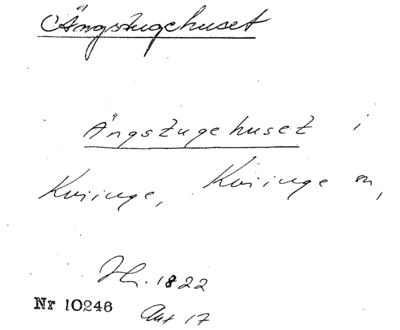 Ängstugehuset
Ängstugehuset i
Kviinge, Kviinge sn,
1822
Nr 10246 Akt 17